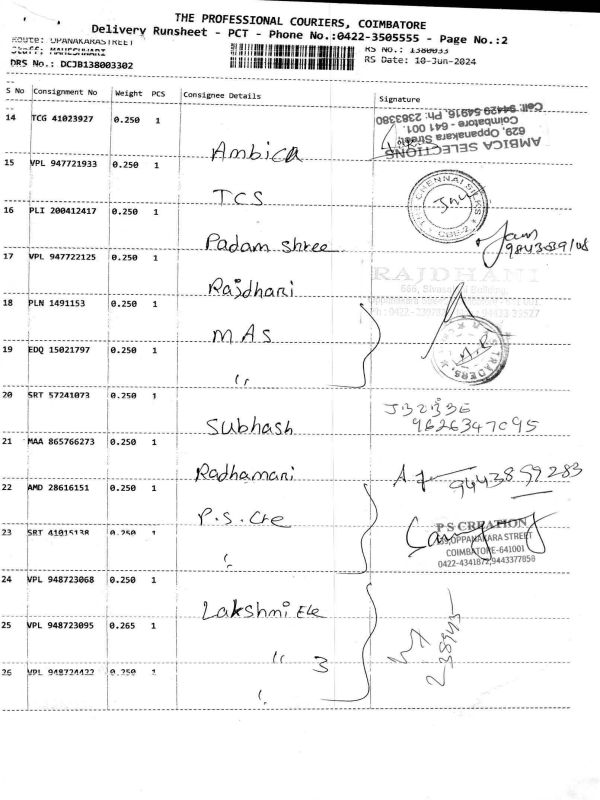 THE PROFESSIONAL COURIERS, COIMBATORE
Delivery Runsheet - PCT - Phone No.:0422-3505555 - Page No.:2
Route: OPANAKARASTREET
Staff: MAHESHWARI
RS No.: 1380033
DRS No.: DCJB138003302
RS Date: 10-Jun-2024
S No Consignment No Weight PCS Consignee Details Signature
14 TCG 41023927 0.250 1 Ambica
AMBICA SELECTIONS
629, Oppanakara Street,
Coimbatore - 641 001.
Cell: 94429 54916, Ph: 2383380
15 VPL 947721933 0.250 1 TCS
THE CHENNAI SILKS
CBE-2
16 PLI 200412417 0.250 1 Padam Shree
17 VPL 947722125 0.250 1 Rajdhani
RAJDHANI
18 PLN 1491153 0.250 1 M.A.S
19 EDQ 15021797 0.250 1 "
TRADERS
20 SRT 57241073 0.250 1 Subhash
9626347095
21 MAA 865766273 0.250 1 Radhamani
9443899283
22 AMD 28616151 0.250 1 P.S. Cre
P S CREATION
OPPANAKARA STREET
COIMBATORE-641001
0422-4341872,9443377858
23 SRT 41015138 0.250 1 "
24 VPL 948723068 0.250 1 Lakshmi Ele
25 VPL 948723095 0.265 1 " 3
26 VPL 948724422 0.250 1 "